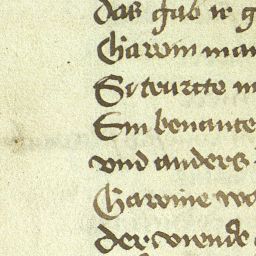 das gab ir g
Gawin man
Si teurtte m
Ein benante
vnd anders
Gawine wo
der viende